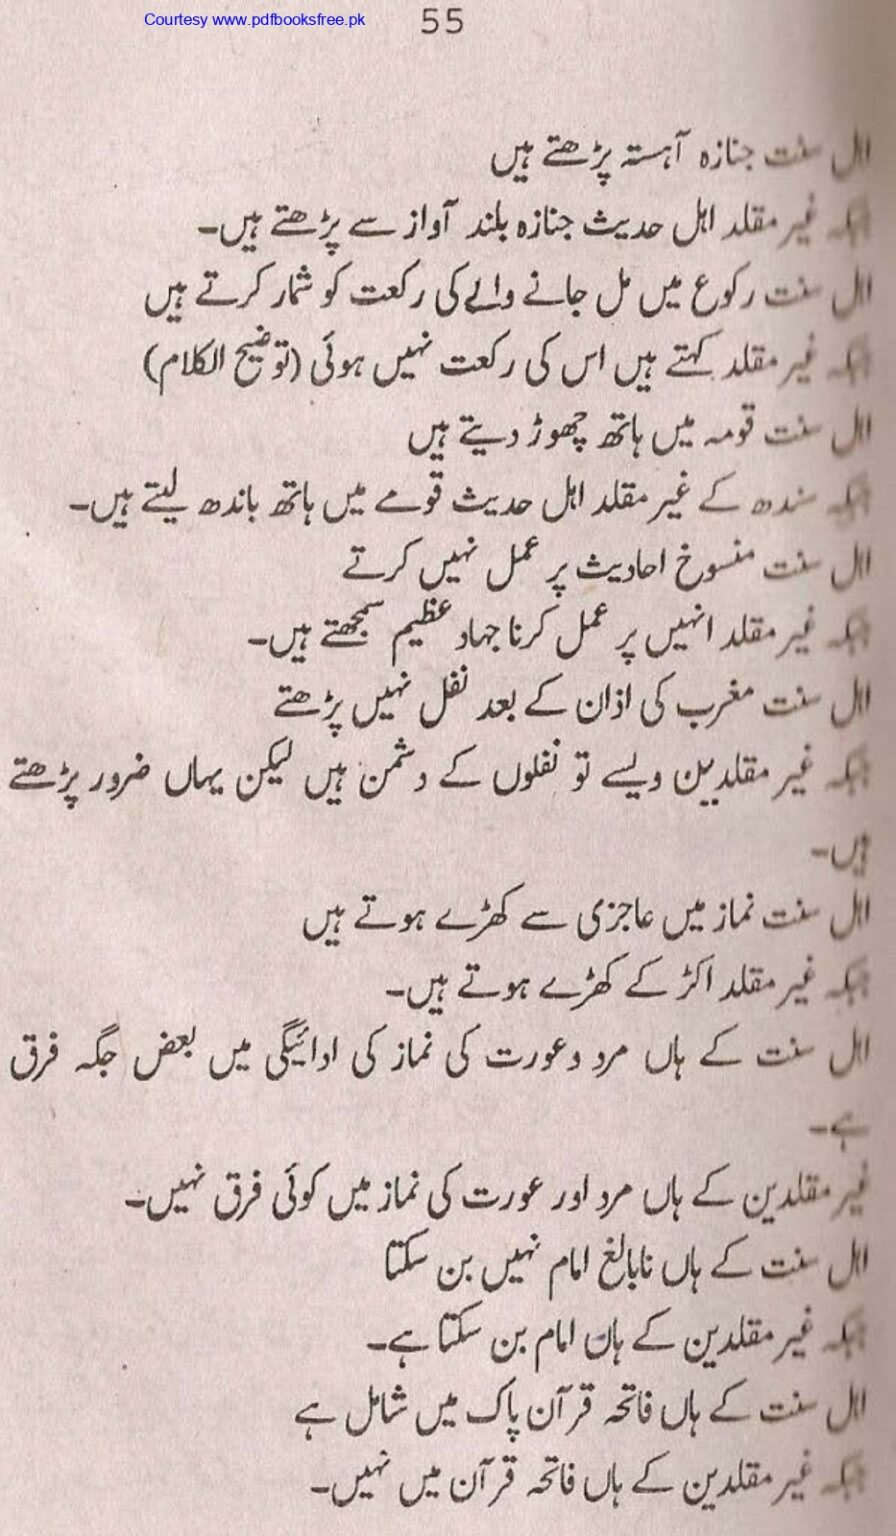 Courtesy www.pdfbooksfree.pk
55
اہل سنت جنازہ آہستہ پڑھتے ہیں
جبکہ غیر مقلد اہل حدیث جنازہ بلند آواز سے پڑھتے ہیں۔
اہل سنت رکوع میں مل جانے والے کی رکعت کو شمار کرتے ہیں
جبکہ غیر مقلد کہتے ہیں اس کی رکعت نہیں ہوئی (توضیح الکلام)
اہل سنت قومہ میں ہاتھ چھوڑ دیتے ہیں
جبکہ سندھ کے غیر مقلد اہل حدیث قومے میں ہاتھ باندھ لیتے ہیں۔
اہل سنت منسوخ احادیث پر عمل نہیں کرتے
جبکہ غیر مقلد انہیں پر عمل کرنا جہاد عظیم سمجھتے ہیں۔
اہل سنت مغرب کی اذان کے بعد نفل نہیں پڑھتے
جبکہ غیر مقلدین ویسے تو نفلوں کے دشمن ہیں لیکن یہاں ضرور پڑھتے
ہیں۔
اہل سنت نماز میں عاجزی سے کھڑے ہوتے ہیں
جبکہ غیر مقلد اکڑ کے کھڑے ہوتے ہیں۔
اہل سنت کے ہاں مرد وعورت کی نماز کی ادائیگی میں بعض جگہ فرق
ہے۔
غیر مقلدین کے ہاں مرد اور عورت کی نماز میں کوئی فرق نہیں۔
اہل سنت کے ہاں نابالغ امام نہیں بن سکتا
جبکہ غیر مقلدین کے ہاں امام بن سکتا ہے۔
اہل سنت کے ہاں فاتحہ قرآن پاک میں شامل ہے
جبکہ غیر مقلدین کے ہاں فاتحہ قرآن میں نہیں۔